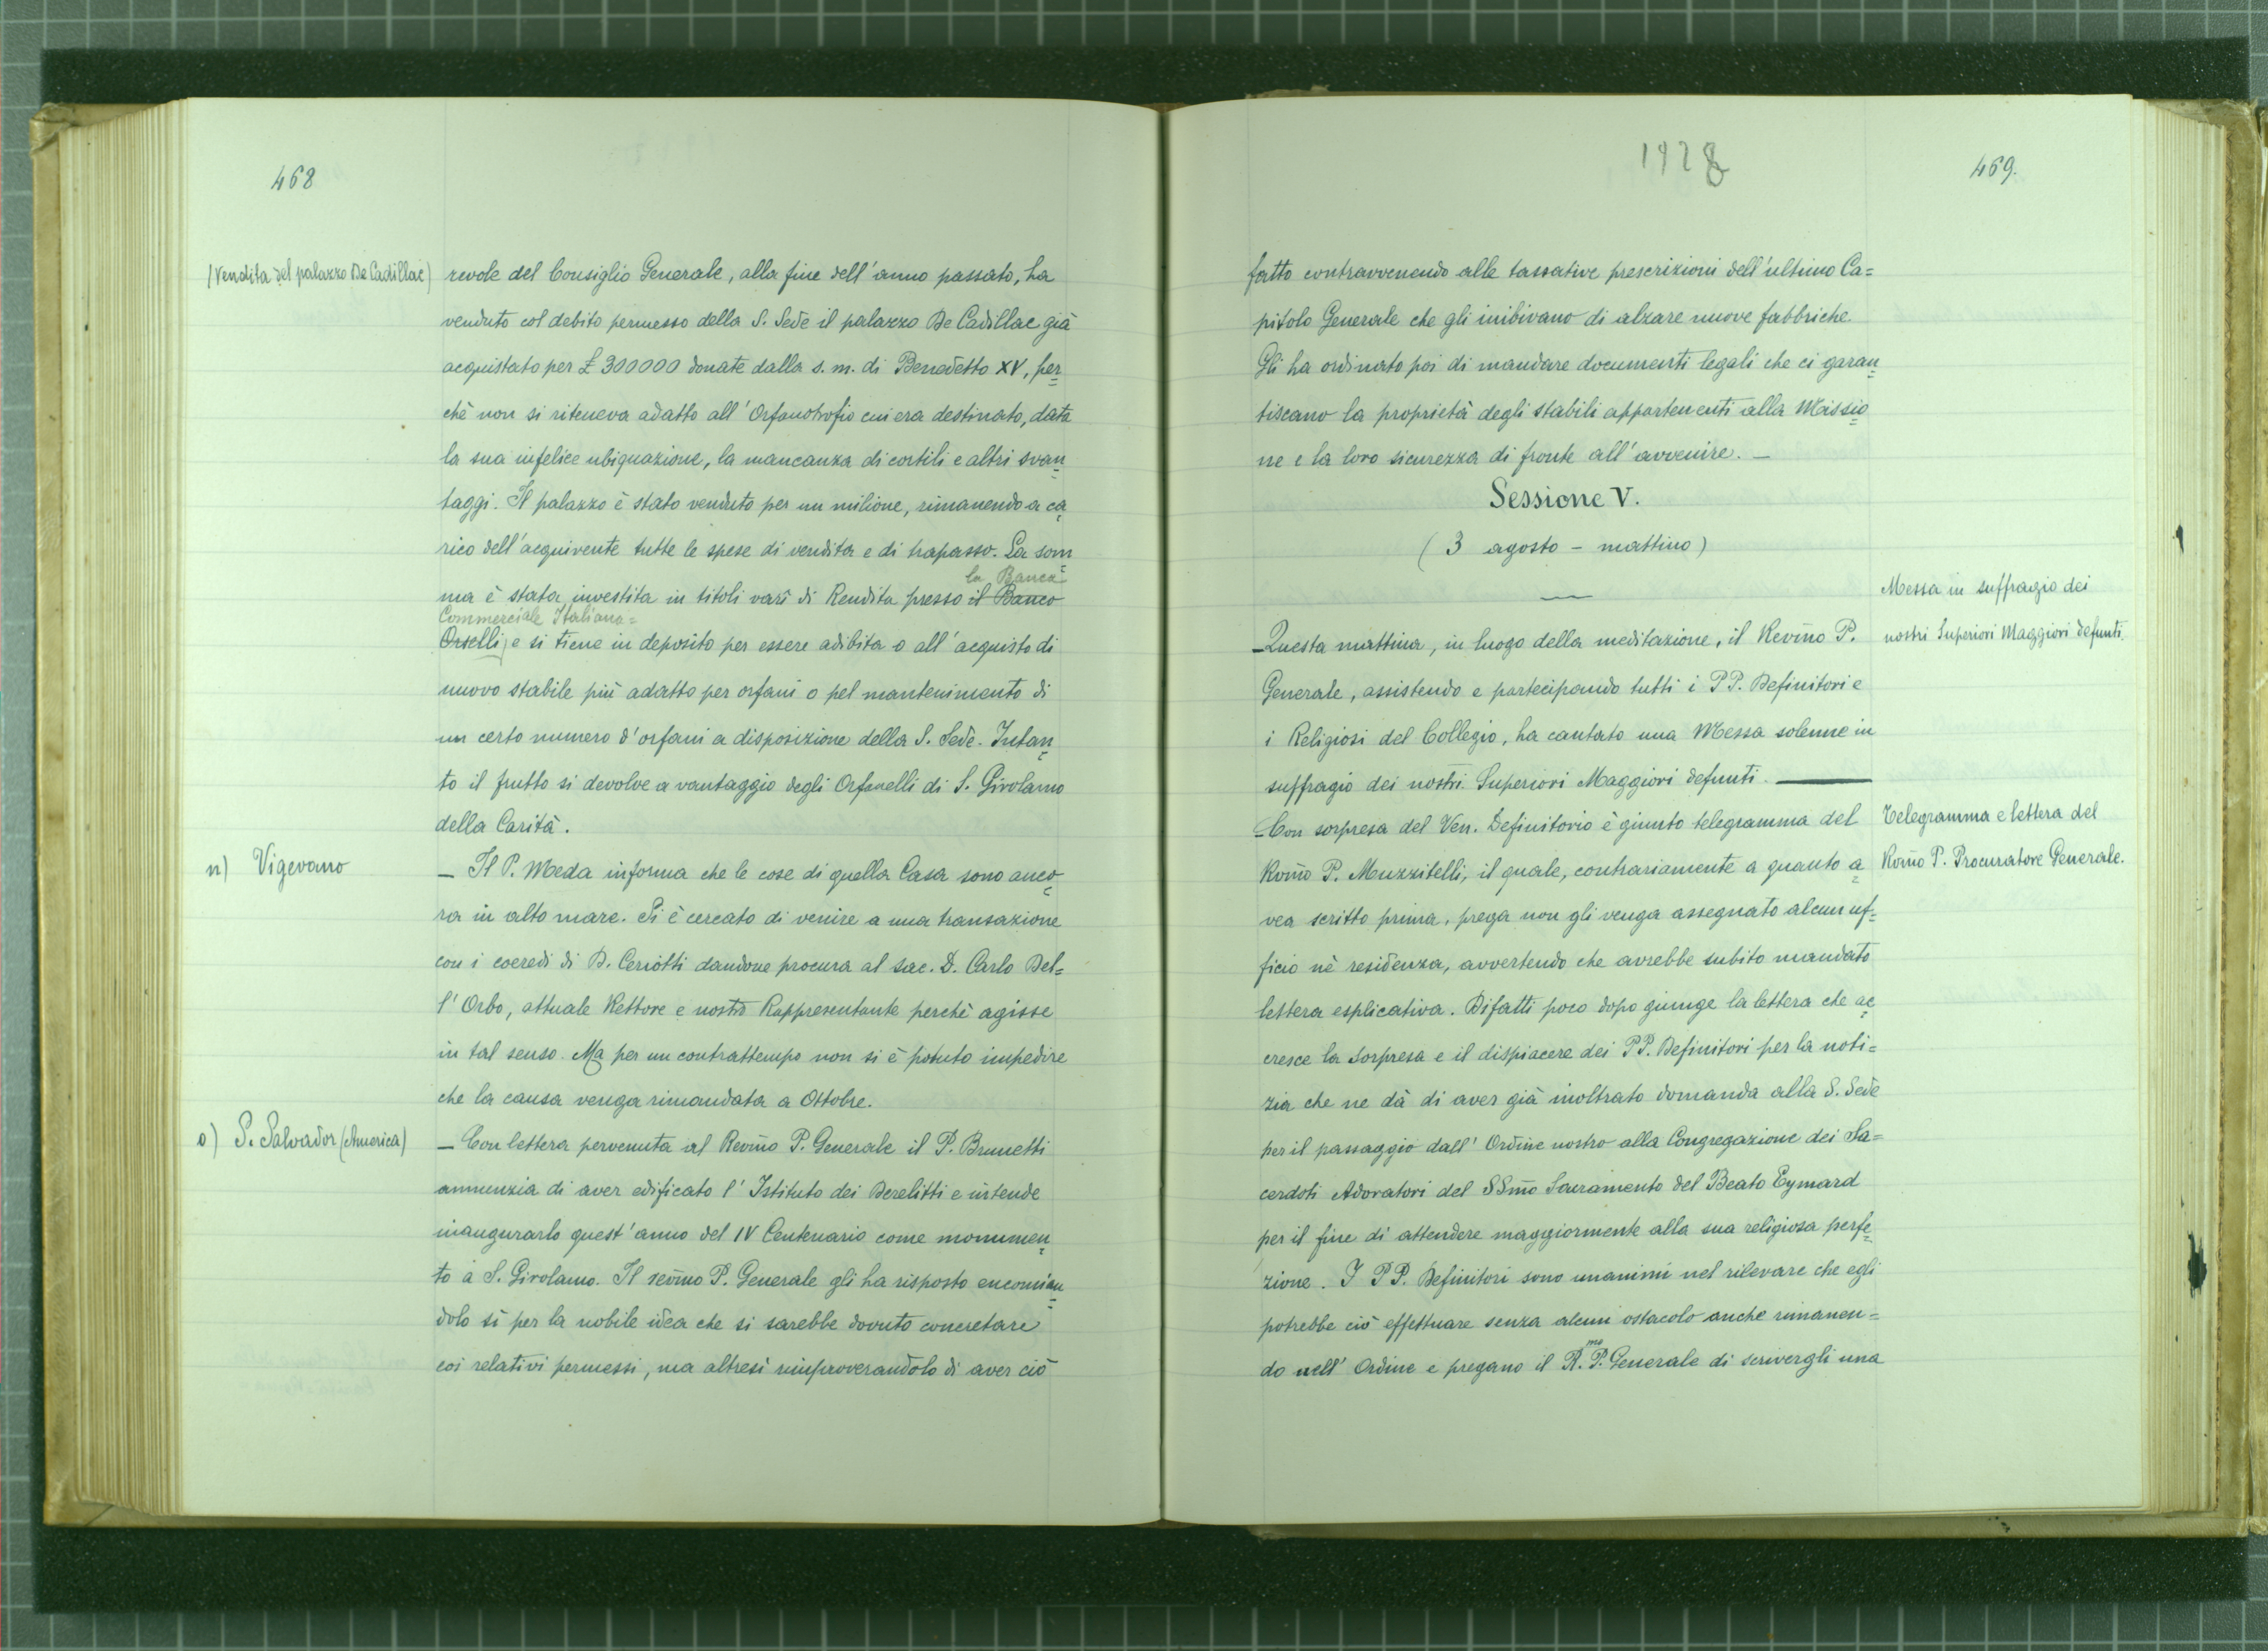 468
(Vendita del palazzo De Cadillac)
revole del Consiglio Generale, alla fine dell'anno passato, ha
venduto col debito permesso della S. Sede il palazzo De Cadillac già
acquistato per £ 300000 donate dalla s. m. di Benedetto XV, per=
chè non si riteneva adatto all'Orfanotrofio cui era destinato, data
la sua infelice ubiquazione, la mancanza di cortili e altri svan=
taggi. Il palazzo è stato venduto per un milione, rimanendo a ca=
rico dell'acquirente tutte le spese di vendita e di trapasso. La som=
la Banca
ma è stata investita in titoli varî di Rendita presso il Banco
Commerciale Italiana=
Orselli, e si tiene in deposito per essere adibita o all'acquisto di
nuovo stabile più adatto per orfani o pel mantenimento di
un certo numero d'orfani a disposizione della S. Sede. Intan=
to il frutto si devolve a vantaggio degli Orfanelli di S. Girolamo
della Carità.
n) Vigevano
— Il P. Meda informa che le cose di quella Casa sono anco=
ra in alto mare. Si è cercato di venire a una transazione
con i coeredi di D. Ceriotti dandone procura al sac. D. Carlo Del=
l'Orbo, attuale Rettore e nostro Rappresentante perchè agisse
in tal senso. Ma per un contrattempo non si è potuto impedire
che la causa venga rimandata a Ottobre.
o) S. Salvador (America)
— Con lettera pervenuta al Revm̃o P. Generale il P. Brunetti
annunzia di aver edificato l'Istituto dei Derelitti e intende
inaugurarlo quest'anno del IV Centenario come monumen=
to a S. Girolamo. Il revm̃o P. Generale gli ha risposto encomian=
dolo sì per la nobile idea che si sarebbe dovuto concretare
coi relativi permessi, ma altresì rimproverandolo di aver ciò
1928
469.
fatto contravvenendo alle tassative prescrizioni dell'ultimo Ca=
pitolo Generale che gli inibivano di alzare nuove fabbriche.
Gli ha ordinato poi di mandare documenti legali che ci garan=
tiscano la proprietà degli stabili appartenenti alla Missio=
ne e la loro sicurezza di fronte all'avvenire. —
Sessione V.
(3 agosto - mattino)
Messa in suffragio dei
nostri Superiori Maggiori defunti.
— Questa mattina, in luogo della meditazione, il Revm̃o P.
Generale, assistendo e partecipando tutti i PP. Definitori e
i Religiosi del Collegio, ha cantato una Messa solenne in
suffragio dei nostri Superiori Maggiori defunti. —
Telegramma e lettera del
Rom̃o P. Procuratore Generale.
— Con sorpresa del Ven. Definitorio è giunto telegramma del
Rom̃o P. Muzzitelli, il quale, contrariamente a quanto a=
vea scritto prima, prega non gli venga assegnato alcun uf=
ficio nè residenza, avvertendo che avrebbe subito mandato
lettera esplicativa. Difatti poco dopo giunge la lettera che ac=
cresce la sorpresa e il dispiacere dei PP. Definitori per la noti=
zia che ne dà di aver già inoltrato domanda alla S. Sede
per il passaggio dall'Ordine nostro alla Congregazione dei Sa=
cerdoti Adoratori del SSm̃o Sacramento del Beato Eymard
per il fine di attendere maggiormente alla sua religiosa perfe=
zione. I PP. Definitori sono unanimi nel rilevare che egli
potrebbe ciò effettuare senza alcun ostacolo anche rimanen=
do nell'Ordine e pregano il R.mo P. Generale di scrivergli una